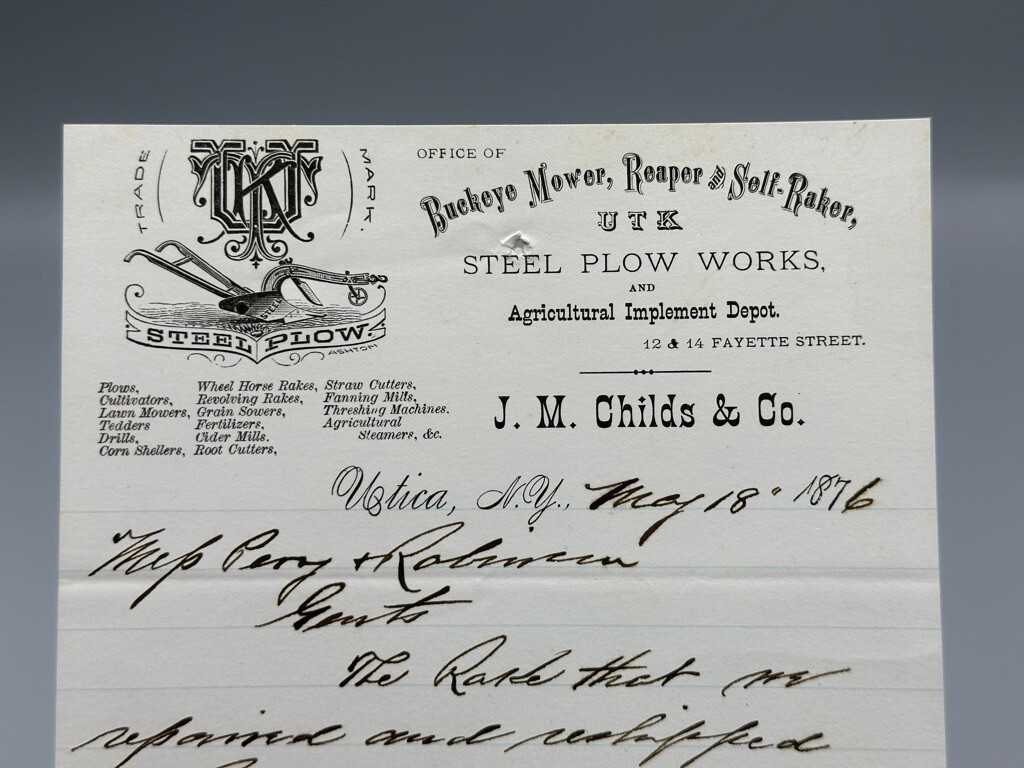 TRADE MARK.
UTK
STEEL
STEEL PLOW.
ASHTON
OFFICE OF
Buckeye Mower, Reaper AND Self-Raker,
UTK
STEEL PLOW WORKS,
AND
Agricultural Implement Depot.
12 & 14 FAYETTE STREET.
J. M. Childs & Co.
Plows,
Cultivators,
Lawn Mowers,
Tedders
Drills,
Corn Shellers,
Wheel Horse Rakes,
Revolving Rakes,
Grain Sowers,
Fertilizers,
Cider Mills.
Root Cutters,
Straw Cutters,
Fanning Mills,
Threshing Machines.
Agricultural
Steamers, &c.
Utica, N.Y., May 18" 1876
Mess Perry & Robinson
Gents
The Rake that we
repaired and reshipped